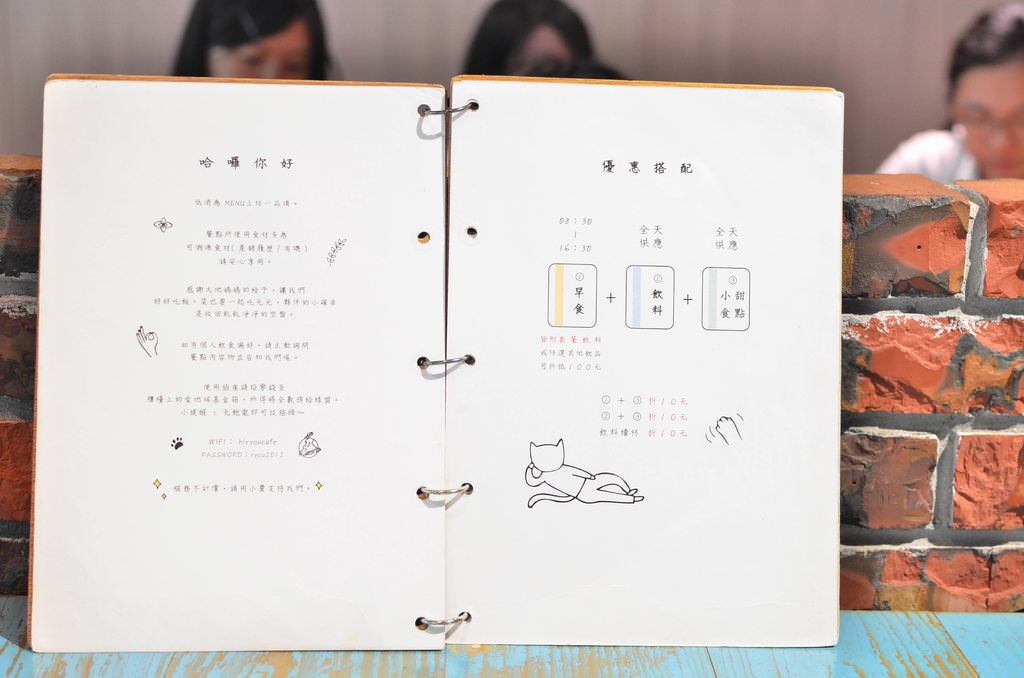 哈囉你好
低消為 MENU上任一品項。
餐點所使用食材多為
可溯源食材(產銷履歷/有機)
請安心享用。
感謝大地媽媽的給予，讓我們
好好吃飯，菜也要一起吃光光，夥伴的小確幸
是收回乾乾淨淨的空盤。
如有個人飲食偏好，請主動詢問
餐點內容物並告知我們喔。
使用插座請投零錢至
櫃檯上的愛地球基金箱，所得將全數捐給綠盟。
小提醒 : 充飽電即可拔插頭～
WIFI： hiryoucafe
PASSWORD：ryou2012
服務不計價，請用小費支持我們。
優惠搭配
08：30
|
16：30
全天
供應
全天
供應
①
早食
+
②
飲料
+
③
甜點
小食
皆附套餐飲料
或任選其他飲品
可折抵100元
① + ③ 折10元
② + ③ 折10元
飲料續杯 折10元